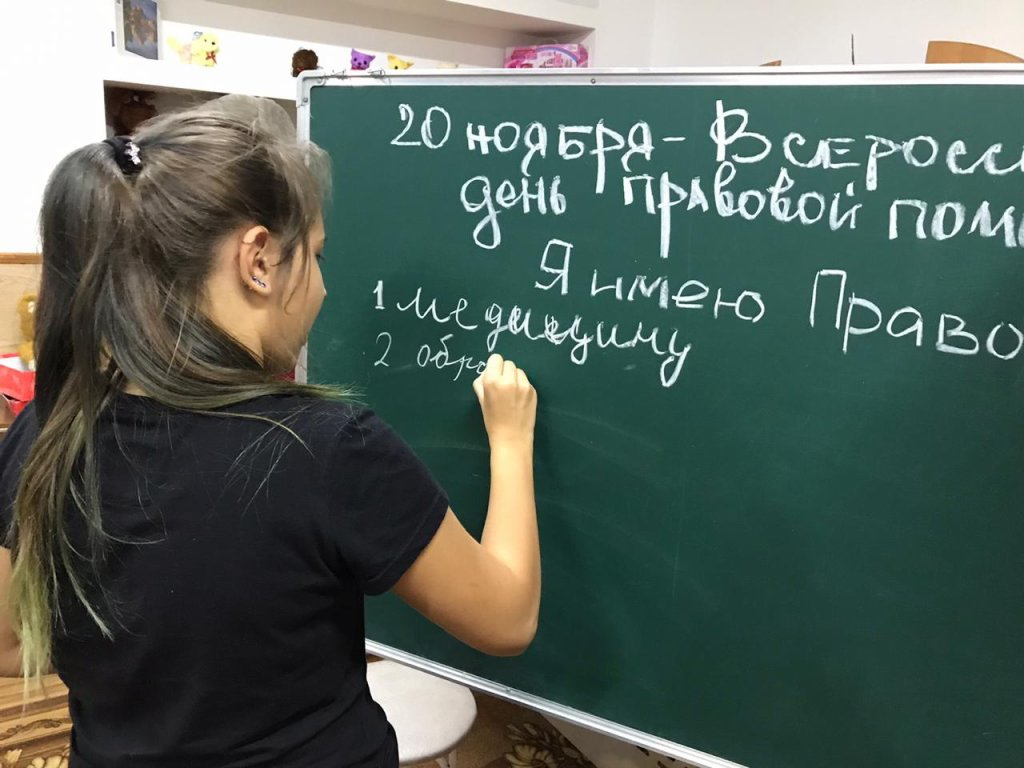 20 ноября - Всеросси
день правовой пом
Я имею Право
1 медицину
2 обра